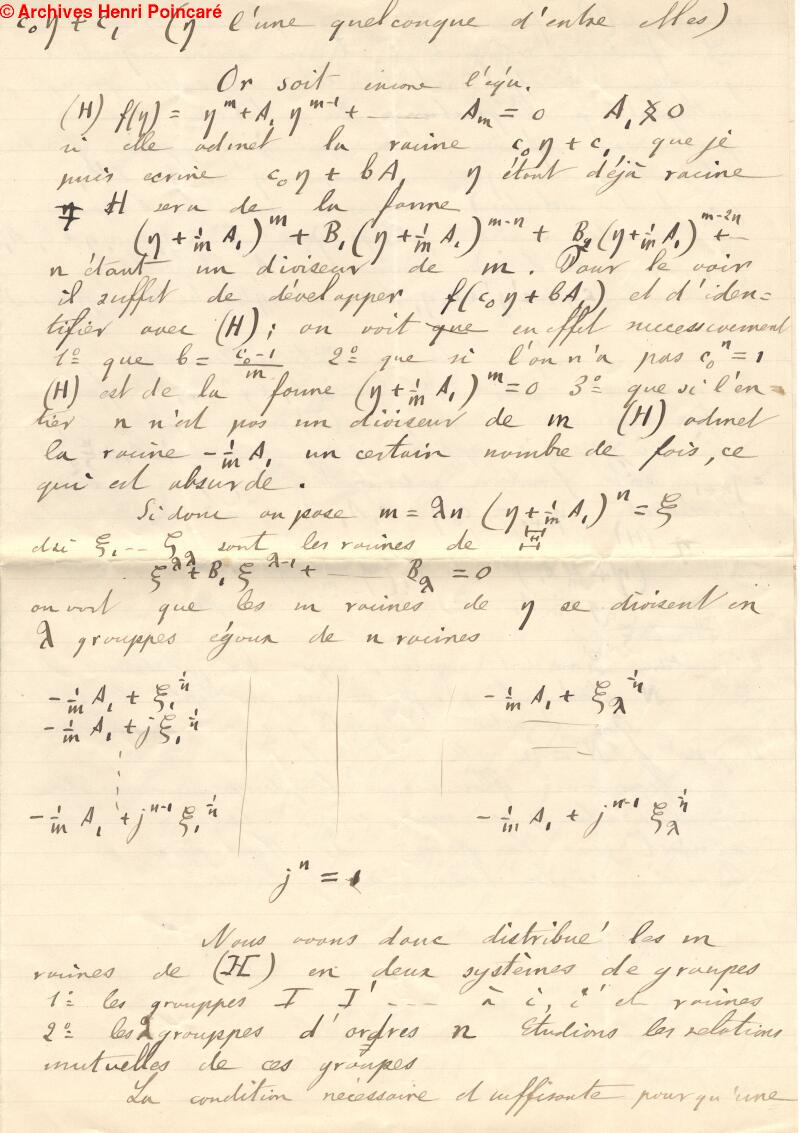 © Archives Henri Poincaré
c₀η + c₁ (η l'une quelconque d'entre elles)
Or soit encore l'équ.
(H) f(η) = η^m + A₁ η^{m-1} + --- A_m = 0 A₁ ≠ 0
si elle admet la racine c₀η + c₁ que je
puis ecrire c₀η + bA₁ η étant déjà racine
H sera de la forme
(η + 1/m A₁)^m + B₁ (η + 1/m A₁)^{m-n} + B₂ (η + 1/m A₁)^{m-2n} + --
n étant un diviseur de m. Pour le voir
il suffit de développer f(c₀η + bA₁) et d'iden=
tifier avec (H); on voit que en effet successivement
1º que b = (c₀-1)/m 2º que si l'on n'a pas c₀^n = 1
(H) est de la forme (η + 1/m A₁)^m = 0 3º que si l'en=
tier n n'est pas un diviseur de m (H) admet
la racine -1/m A₁ un certain nombre de fois, ce
qui est absurde.
Si donc on pose m = λn (η + 1/m A₁)^n = ξ
ξ₁ --- ξ_λ sont les racines de
ξ^λ + B₁ ξ^{λ-1} + --- B_λ = 0
on voit que les m racines de η se divisent en
λ grouppes égaux de n racines
-1/m A₁ + ξ₁^{1/n} -1/m A₁ + ξ_λ^{1/n}
-1/m A₁ + j ξ₁^{1/n}
-1/m A₁ + j^{n-1} ξ₁^{1/n} -1/m A₁ + j^{n-1} ξ_λ^{1/n}
j^n = 1
Nous avons donc distribué les m
racines de (H) en deux systèmes de groupes
1º les grouppes I I' --- à i, i' et racines
2º les λ grouppes d'ordres n Etudions les relations
mutuelles de ces groupes
La condition nécessaire et suffisante pour qu'une